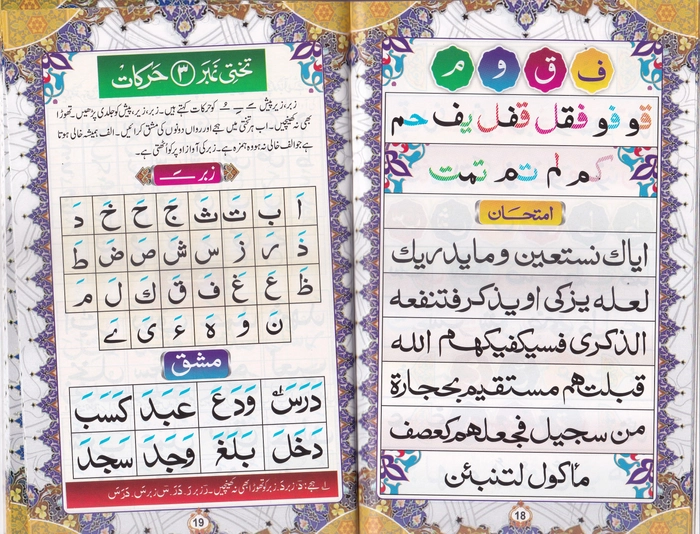 ف ق و م
قو فو فقل قفل يف حم
كم لم تم تمت
امتحان
اياك نستعين وما يدريك
لعله يزكى او يذكر فتنفعه
الذكرى فسيكفيكهم الله
قبلتهم مستقيم بحجارة
من سجيل فجعلهم كعصف
مأكول لتنبئن
18
تختی نمبر ۳ حرکات
زبر، زیر، پیش ـَـ ـِـ ـُـ کو حرکات کہتے ہیں۔ زبر، زیر، پیش کو جلدی پڑھیں۔ تھوڑا
بھی نہ کھینچیں۔ اب ہر تختی میں ہجے اور رواں دونوں کی مشق کرائیں۔ الف ہمیشہ خالی ہوتا
ہے جو الف خالی نہ ہو وہ ہمزہ ہے۔ زبر کی آواز اوپر کو اٹھتی ہے۔
زبر ـَـ
اَ بَ تَ ثَ جَ حَ خَ دَ
ذَ رَ زَ سَ شَ صَ ضَ طَ
ظَ عَ غَ فَ قَ كَ لَ مَ
نَ وَ هَ ءَ یَ ےَ
مشق
دَرَسَ وَدَعَ عَبَدَ كَسَبَ
دَخَلَ بَلَغَ وَجَدَ سَجَدَ
ہجے: دَ زبر دَ، زبر کو تھوڑا بھی نہ کھینچیں۔ رَ زبر رَ، دَرَ، سَ زبر سَ، دَرَسَ
19